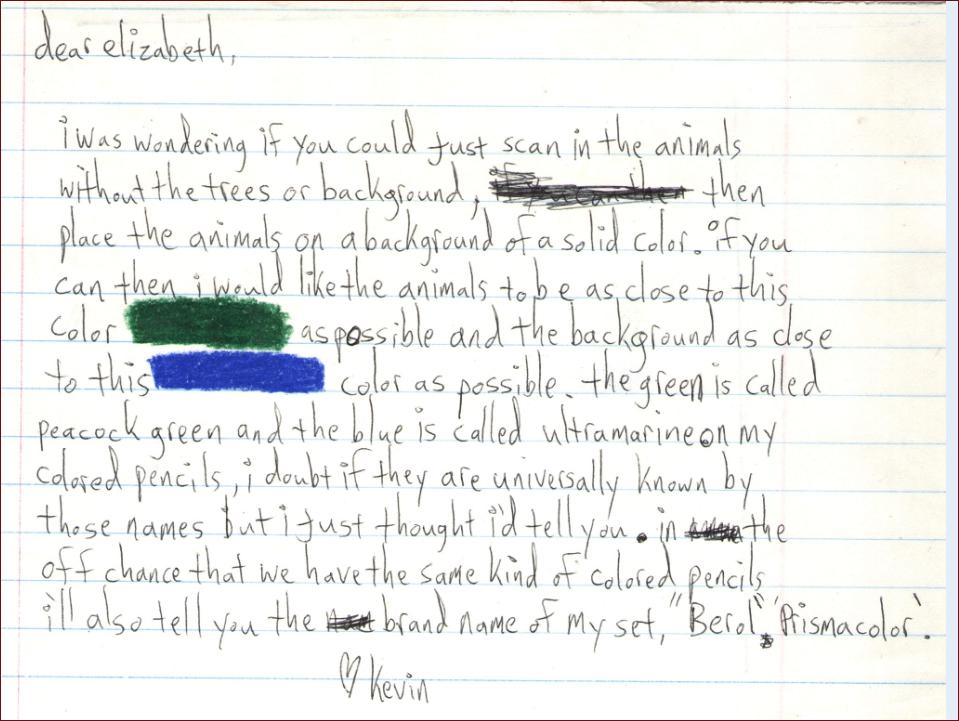 dear elizabeth,
i was wondering if you could just scan in the animals
without the trees or background, then
place the animals on a background of a solid color. if you
can then i would like the animals to be as close to this
color as possible and the background as close
to this color as possible. the green is called
peacock green and the blue is called ultramarine on my
colored pencils, i doubt if they are universally known by
those names but i just thought i'd tell you. in the
off chance that we have the same kind of colored pencils
i'll also tell you the brand name of my set, "Berol" 'Prismacolor'.
♡ Kevin